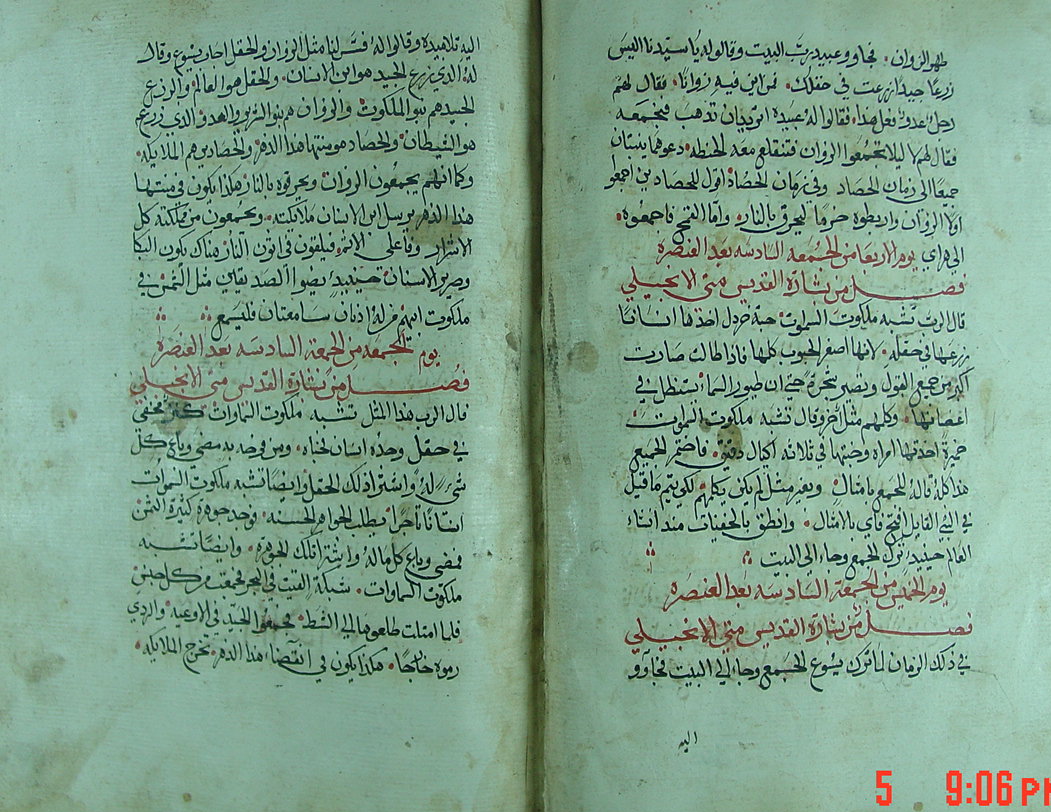 ظهر الزوان فجاوو عبيد رب البيت وقالوله يا سيدنا اليس
زرعًا جيدا زرعت في حقلك فمن اين فيه زوانا فقال لهم
رجل عدو فعل هذا فقالوا له عبيده اتريد ان نذهب فنجمعه
فقال لهم لا ليلا تجمعوا الزوان فتنقلع معه الحنطه دعوهما ينبتان
جميعا الى زمان الحصاد وفي زمان الحصاد اقول للحصادين اجمعو
اولا الزوان واربطوه حزما ليحرق بالنار واما القمح فاجمعوه
الى هراي يوم الاربعا من الجمعه السادسه بعد العنصره
فصل من بشارة القديس متى الانجيلي
قال الرب تشبه ملكوت السموات حبة خردل اخذها انسانا
زرعها في حقله لانها اصغر الحبوب كلها فاذا طالت صارت
اكبر من جميع البقول وتصير شجرة حتى ان طيور السما تستظل في
اغصانها وكلمهم مثل اخر وقال تشبه ملكوت السموات
خميرة اخذتها امراه وخبتها في ثلاثة اكيال دقيق فاختمر الجميع
هذا كله قاله للجمع بامثال وبغير مثل لم يكن يكلمهم لكي يتم ما قيل
في النبي القايل افتح فاي بالامثال وانطق بالخفيات منذ انشاء
العالم حينيذ ترك الجمع وجاء الى البيت
يوم الخميس من الجمعة السادسه بعد العنصره
فصل من بشارة القديس متى الانجيلي
في ذلك الزمان لما ترك يسوع الجمع وجا الى البيت فجاوو
اليه
اليه تلاميذه وقالوا له فسر لنا مثل الزوان والحقل اجاب يسوع وقال
له الذي يزرع الجيد هو ابن الانسان والحقل هو العالم والزرع
الجيد هم بنو الملكوت والزوان هم بنو الشرير والعدو الذي زرعه
هو الشيطان والحصاد هو منتها هذا الدهر والحصادين هم الملايكه
وكما انهم يجمعون الزوان ويحرقوه بالنار هكذا يكون في منتها
هذا الدهر يرسل ابن الانسان ملايكته ويجمعون من مملكته كل
الاشرار وفاعلي الاثم فيلقون في اتون النار هناك يكون البكا
وصرير الاسنان حينيذ يضوا الصديقين مثل الشمس في
ملكوت ابيهم من له اذنان سامعتان فليسمع
يوم الجمعه من الجمعة السادسه بعد العنصره
فصل من بشارة القديس متى الانجيلي
قال الرب هذا المثل تشبه ملكوت السماوات كنز مخفى
في حقل وجده انسان فخباه ومن فرحه به مضى وباع كل
شي له واشترا ذلك الحقل وايضا تشبه ملكوت السموات
انسانا تاجرا يطلب الجواهر الحسنه فوجد جوهرة كثيرة الثمن
فمضى وباع كل ماله واشترا تلك الجوهره وايضا تشبه
ملكوت السماوات شبكة القيت في البحر فجمعت من كل جنس
فلما امتلت طلعوها الى الشط فجمعوا الجيد في الاوعيه والردي
رموه خارجا هكذا يكون في انقضا هذا الدهر تخرج الملايكه
5 9:06 PM